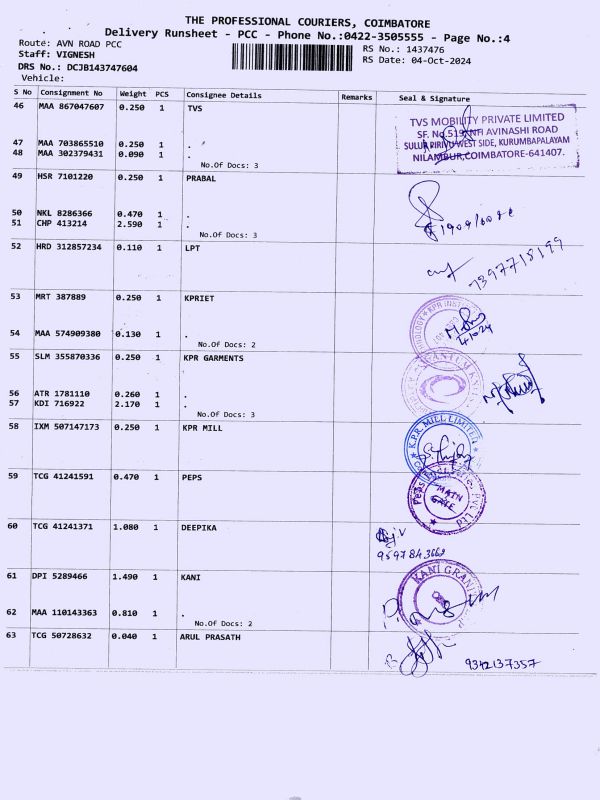 THE PROFESSIONAL COURIERS, COIMBATORE
Delivery Runsheet - PCC - Phone No.:0422-3505555 - Page No.:4
Route: AVN ROAD PCC
RS No.: 1437476
Staff: VIGNESH
RS Date: 04-Oct-2024
DRS No.: DCJB143747604
Vehicle:
S No Consignment No Weight PCS Consignee Details Remarks Seal & Signature
46 MAA 867047607 0.250 1 TVS
TVS MOBILITY PRIVATE LIMITED
SF. No.519, NH AVINASHI ROAD
SULUR PIRIVU WEST SIDE, KURUMBAPALAYAM
NILAMBUR, COIMBATORE-641407.
47 MAA 703865510 0.250 1 .
48 MAA 302379431 0.090 1 .
No.Of Docs: 3
49 HSR 7101220 0.250 1 PRABAL
50 NKL 8286366 0.470 1 .
51 CHP 413214 2.590 1 .
No.Of Docs: 3
52 HRD 312857234 0.110 1 LPT
7397718199
53 MRT 387889 0.250 1 KPRIET
54 MAA 574909380 0.130 1 .
No.Of Docs: 2
4/10/24
55 SLM 355870336 0.250 1 KPR GARMENTS
56 ATR 1781110 0.260 1 .
57 KDI 716922 2.170 1 .
No.Of Docs: 3
58 IXM 507147173 0.250 1 KPR MILL
K.P.R. MILL LIMITED
59 TCG 41241591 0.470 1 PEPS
MAIN
GATE
60 TCG 41241371 1.080 1 DEEPIKA
61 DPI 5289466 1.490 1 KANI
KANI
62 MAA 110143363 0.810 1 .
No.Of Docs: 2
63 TCG 50728632 0.040 1 ARUL PRASATH
9342137357